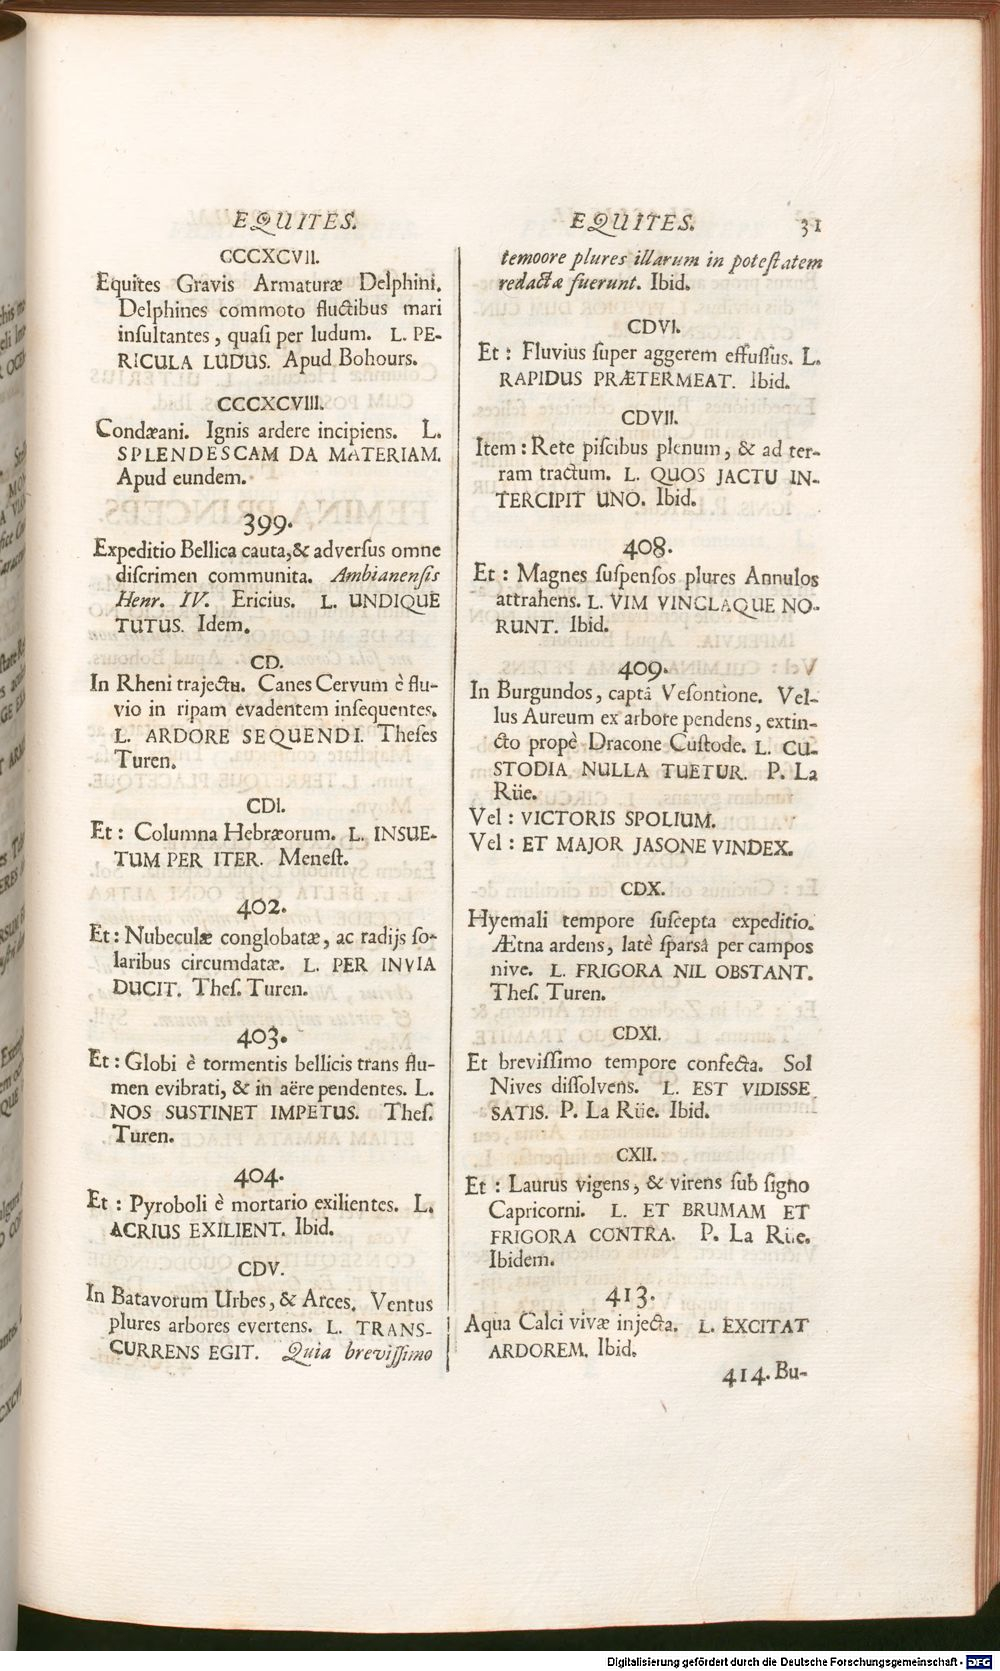 EQUITES.
CCCXCVII.
Equites Gravis Armaturæ Delphini.
Delphines commoto fluctibus mari
insultantes, quasi per ludum. L. PE-
RICULA LUDUS. Apud Bohours.
CCCXCVIII.
Condæani. Ignis ardere incipiens. L.
SPLENDESCAM DA MATERIAM.
Apud eundem.
399.
Expeditio Bellica cauta, & adversus omne
discrimen communita. Ambianensis
Henr. IV. Ericius. L. UNDIQUE
TUTUS. Idem.
CD.
In Rheni trajectu. Canes Cervum è flu-
vio in ripam evadentem insequentes.
L. ARDORE SEQUENDI. Theses
Turen.
CDI.
Et: Columna Hebræorum. L. INSUE-
TUM PER ITER. Menest.
402.
Et: Nubeculæ conglobatæ, ac radijs so-
laribus circumdatæ. L. PER INVIA
DUCIT. Thes. Turen.
403.
Et: Globi è tormentis bellicis trans flu-
men evibrati, & in aëre pendentes. L.
NOS SUSTINET IMPETUS. Thes.
Turen.
404.
Et: Pyroboli è mortario exilientes. L.
ACRIUS EXILIENT. Ibid.
CDV.
In Batavorum Urbes, & Arces. Ventus
plures arbores evertens. L. TRANS-
CURRENS EGIT. Quia brevissimo
EQUITES. 31
temoore plures illarum in potestatem
redactæ fuerunt. Ibid.
CDVI.
Et: Fluvius super aggerem effussus. L.
RAPIDUS PRÆTERMEAT. Ibid.
CDVII.
Item: Rete piscibus plenum, & ad ter-
ram tractum. L. QUOS JACTU IN-
TERCIPIT UNO. Ibid.
408.
Et: Magnes suspensos plures Annulos
attrahens. L. VIM VINCLAQUE NO-
RUNT. Ibid.
409.
In Burgundos, captâ Vesontione. Vel-
lus Aureum ex arbore pendens, extin-
cto propè Dracone Custode. L. CU-
STODIA NULLA TUETUR. P. La
Rüe.
Vel: VICTORIS SPOLIUM.
Vel: ET MAJOR JASONE VINDEX.
CDX.
Hyemali tempore suscepta expeditio.
Ætna ardens, latè sparsâ per campos
nive. L. FRIGORA NIL OBSTANT.
Thes. Turen.
CDXI.
Et brevissimo tempore confecta. Sol
Nives dissolvens. L. EST VIDISSE
SATIS. P. La Rüe. Ibid.
CXII.
Et: Laurus vigens, & virens sub signo
Capricorni. L. ET BRUMAM ET
FRIGORA CONTRA. P. La Rüe.
Ibidem.
413.
Aqua Calci vivæ injecta. L. EXCITAT
ARDOREM. Ibid.
414. Bu-
Digitalisierung gefördert durch die Deutsche Forschungsgemeinschaft - DFG